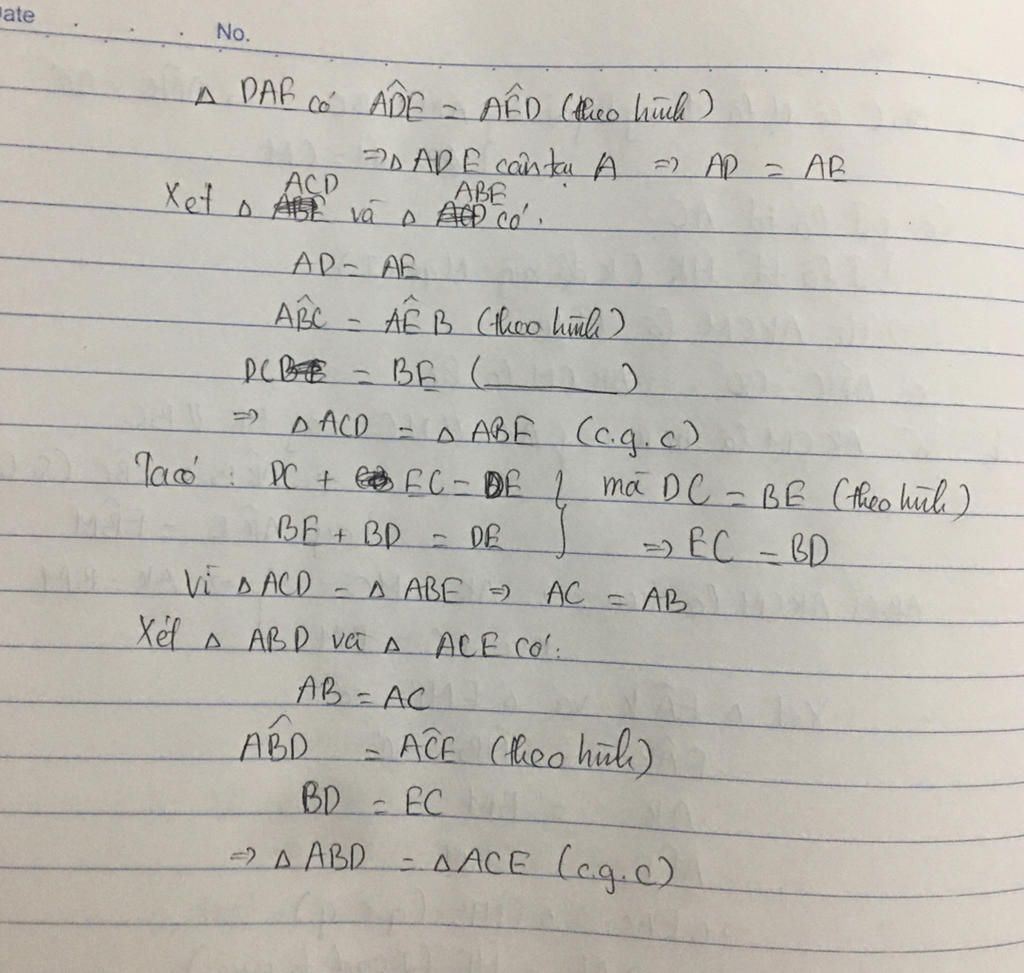 Date . . . No.
△ DAE có ADÊ = AÊD (theo hình)
⇒ △ ADE cân tại A ⇒ AD = AE
Xét △ ACD và △ ABE có:
AD = AE
AB̂C = AÊB (theo hình)
DC = BE (______)
⇒ △ ACD = △ ABE (c.g.c)
Ta có: DC + EC = DE } mà DC = BE (theo hình)
BE + BD = DE } ⇒ EC = BD
Vì △ ACD = △ ABE ⇒ AC = AB
Xét △ ABD và △ ACE có:
AB = AC
AB̂D = AĈE (theo hình)
BD = EC
⇒ △ ABD = △ ACE (c.g.c)